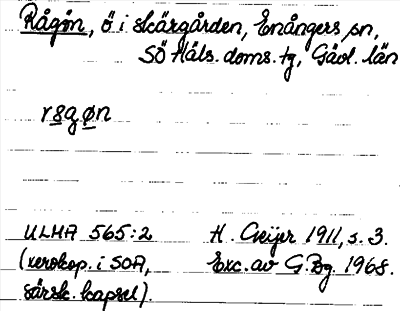 Rågön, ö i skärgården, Enångers sn,
SÖ Häls. doms. tg, Gävl. län
rsgøn
ULMA 565:2 H. Geijer 1911, s. 3.
(xerokop. i SOA, Exc. av G.Bg. 1968.
särsk. kapsel).